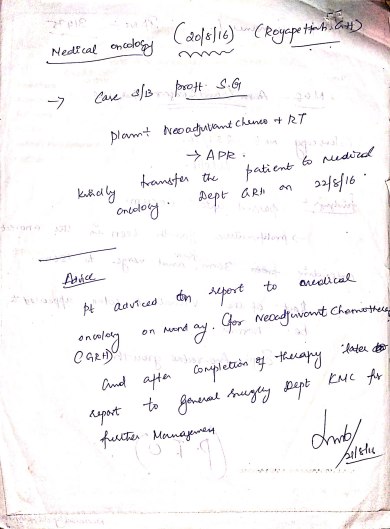 Medical oncology (20/8/16) (Royapettah GH)
→ Case S/B Proff. S.G
Plan:- Neoadjuvant chemo + RT
→ APR.
kindly transfer the patient to medical
oncology. Dept GRH on 22/8/16.
Advice
Pt adviced to report to medical
oncology on monday. (for Neoadjuvant Chemotherapy
(GRH)
and after completion of therapy later
report to general surgery Dept KMC for
further Management
21/8/16